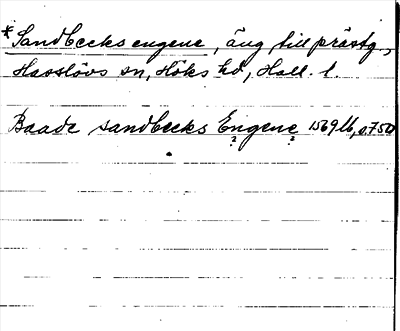 *Sandbecks engene, äng till prästg.,
Hasslövs sn, Höks hd, Hall. l.
Baade sandbecks Engene 1569 Lb, s. 750